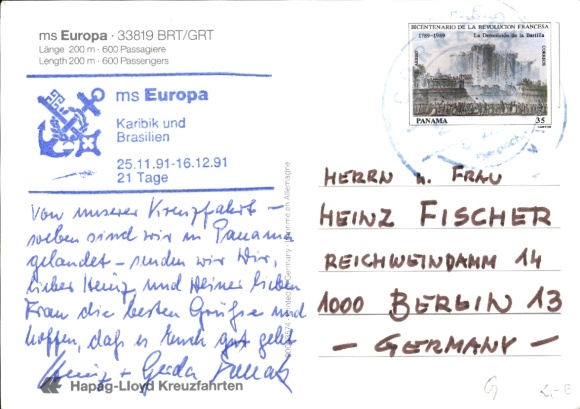 ms Europa · 33819 BRT/GRT
Länge 200 m · 600 Passagiere
Length 200 m · 600 Passengers
ms Europa
Karibik und
Brasilien
25.11.91-16.12.91
21 Tage
Von unserer Kreuzfahrt –
soeben sind wir in Panama
gelandet – senden wir Dir,
lieber Heinz und Deiner lieben
Frau die besten Grüße und
hoffen, daß es Euch gut geht
Heinz + Gerda
Hapag-Lloyd Kreuzfahrten
Printed in Germany
en Allemagne
BICENTENARIO DE LA REVOLUCION FRANCESA
1789-1989 La Demolición de la Bastilla
AEREO
CORREOS
PANAMA 35
HERRN u. FRAU
HEINZ FISCHER
REICHWEINDAMM 14
1000 BERLIN 13
– GERMANY –